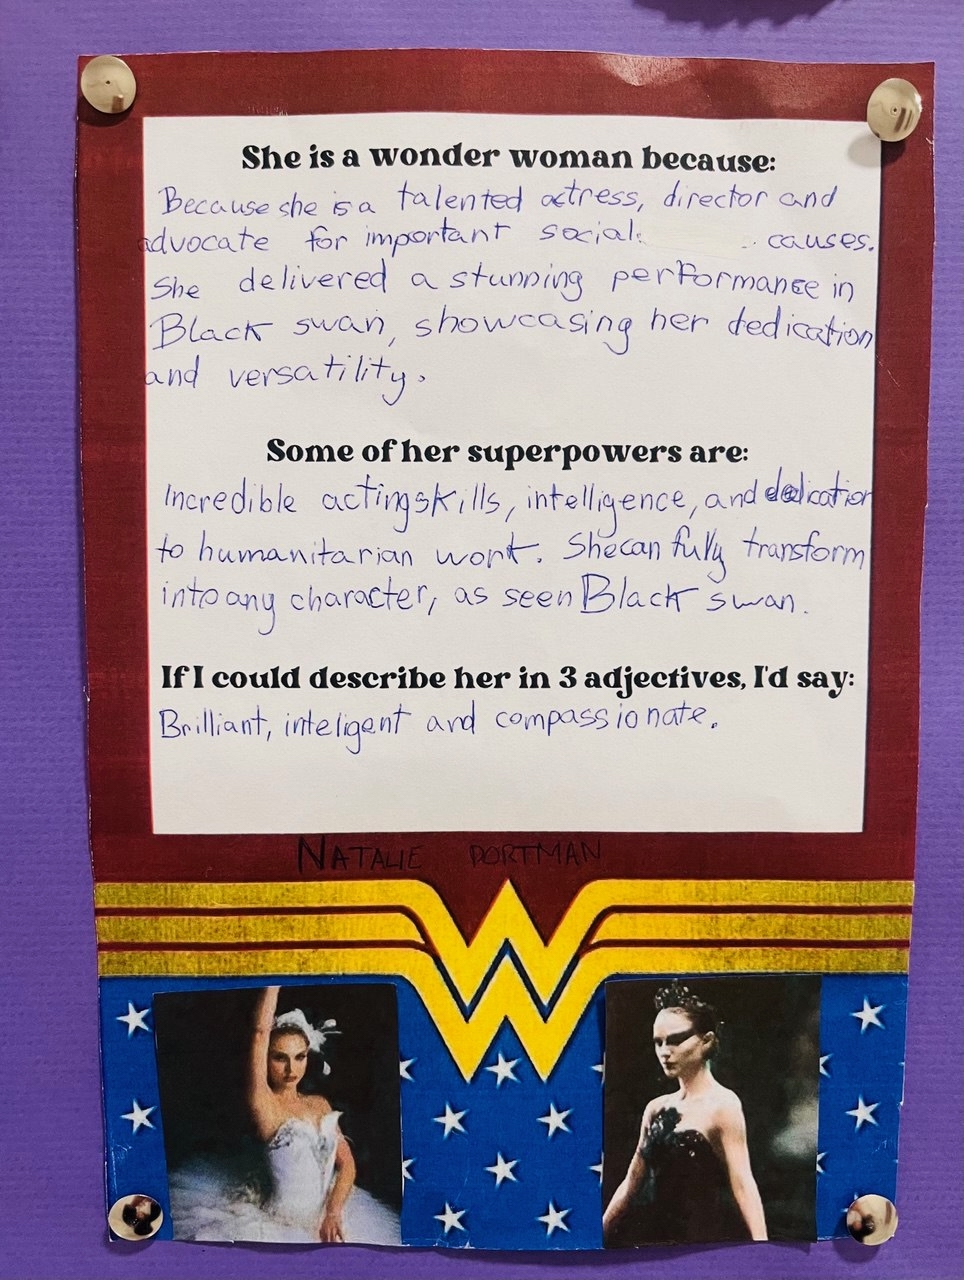 She is a wonder woman because:
Because she is a talented actress, director and
advocate for important social causes.
She delivered a stunning performance in
Black swan, showcasing her dedication
and versatility.
Some of her superpowers are:
Incredible acting skills, intelligence, and dedication
to humanitarian work. She can fully transform
into any character, as seen Black swan.
If I could describe her in 3 adjectives, I'd say:
Brilliant, inteligent and compassionate.
NATALIE PORTMAN